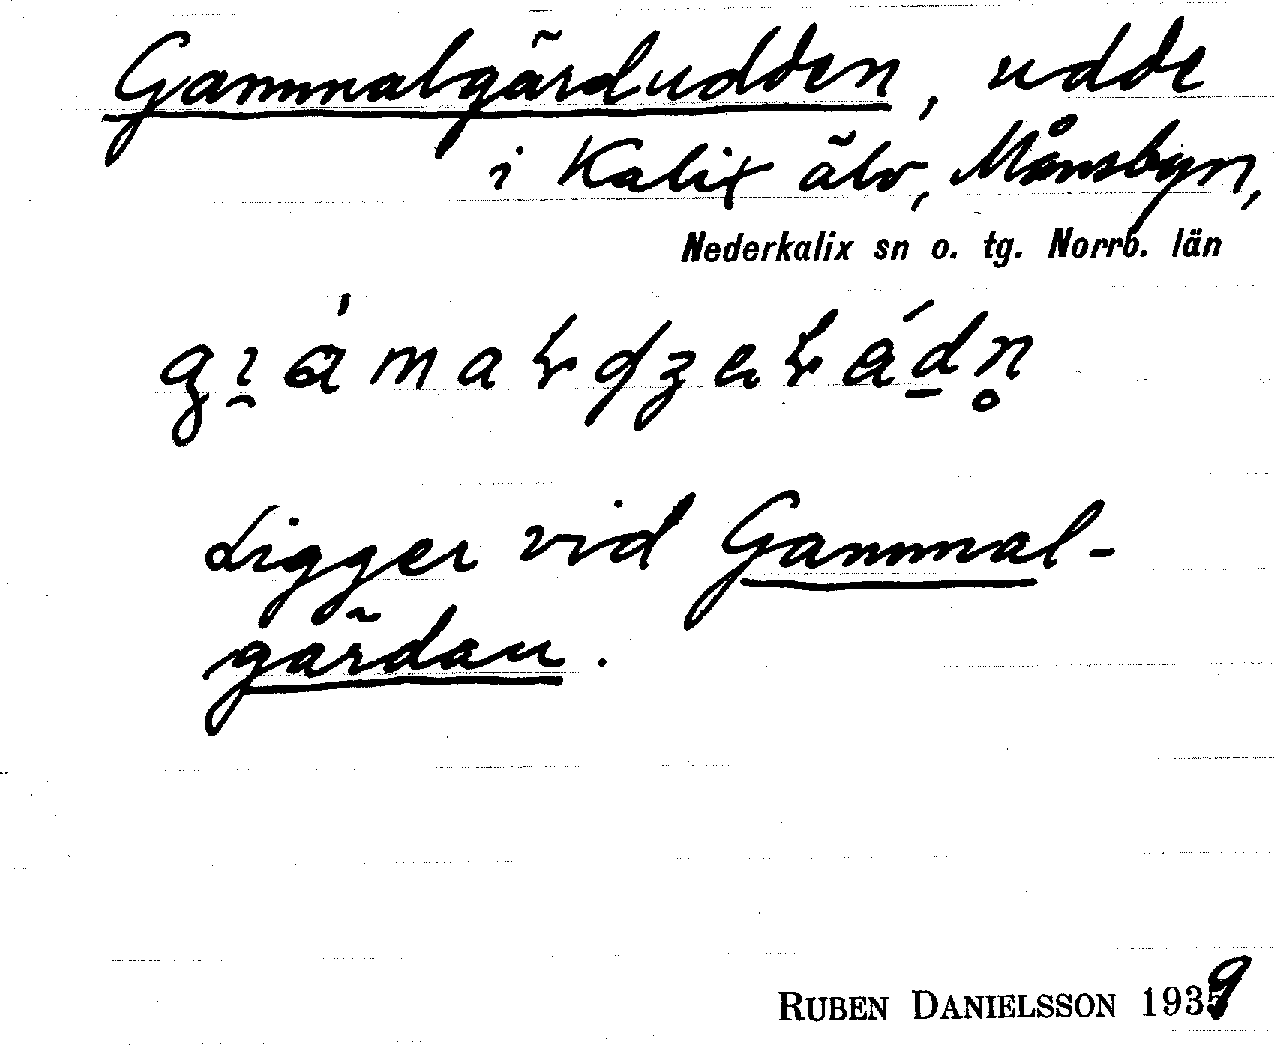 Gammalgärdudden, udde
i Kalix älv, Månsbyn,
Nederkalix sn o. tg. Norrb. län
Ligger vid Gammal-
gärdan.
RUBEN DANIELSSON 1939